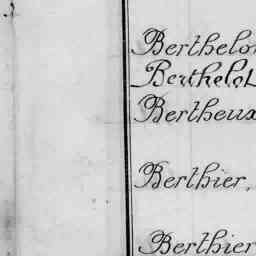 Berthelot
Berthelot
Bertheux
Berthier,
Berthier